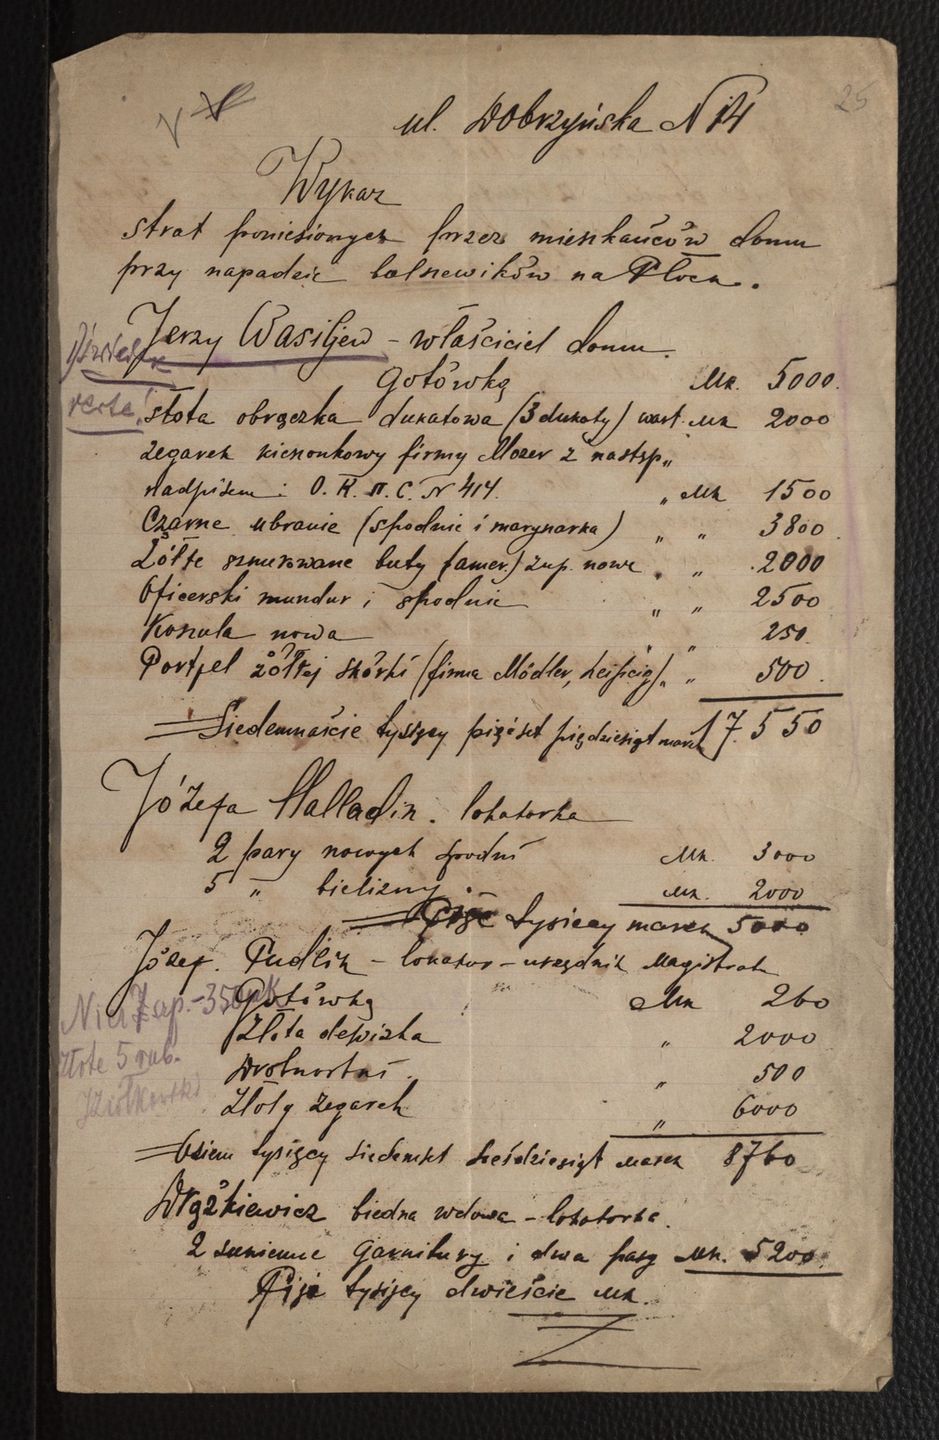 25
ul. Dobrzyńska N 14
Wykaz
strat poniesionych przez mieszkańców domu
przy napadzie bolszewików na Płock.
Jerzy Wasiljew – właściciel domu.
Gotówką Mk. 5000.
złota obrączka dukatowa (3 dukaty) wart. Mk 2000
zegarek kieszonkowy firmy Mozer z następ„
nadpisem: О.К.П.С. N 414. „ Mk 1500
Czarne ubranie (spodnie i marynarka) „ „ 3800.
Żółte sznurowane buty (amer.) zup. nowe „ „ 2000
Oficerski mundur i spodnie „ „ 2500
Koszula nowa „ „ 250.
Portfel żółtej skórki (firma Mödler, Leipcig) „ „ 500.
Siedemnaście tysięcy pięćset pięćdziesiąt marek 17.550
Józefa Malladin. lokatorka
2 pary nowych spodni Mk. 3000
5 „ bielizny. Mk. 2000
Pięć tysięcy marek 5000
Józef. Pudlik – lokator – urzędnik Magistratu
Gotówką Mk 260
Złota dewizka „ 2000
Drobnostki. „ 500
Złoty zegarek „ 6000
Osiem tysięcy siedemset sześćdziesiąt marek 8760
złote 5 rub.
Ziółkowski
biedna wdowa – lokatorka.
2 sukienne garnitury i dwa pasy Mk. 5200.
Pięć tysięcy dwieście Mk.